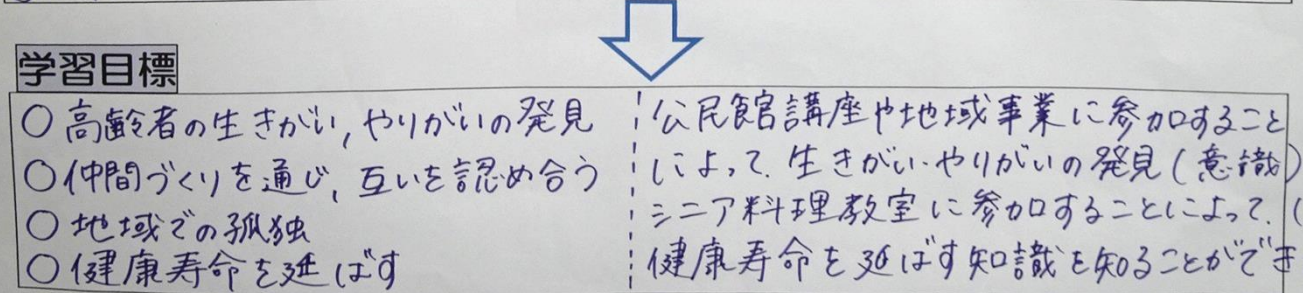 学習目標
○高齢者の生きがい,やりがいの発見
○仲間づくりを通じ,互いを認め合う
○地域での孤独
○健康寿命を延ばす
公民館講座や地域事業に参加すること
によって、生きがい・やりがいの発見(意識)
シニア料理教室に参加することによって、(
健康寿命を延ばす知識を知ることができ